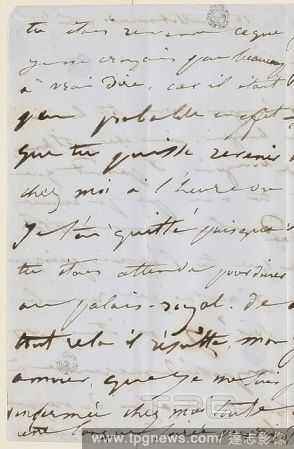 tu étais revenu ce que
je ne croyais pas beaucoup
à vrai dire, car il était
peu probable en effet
que tu puisse revenir
chez moi à l'heure où
je t'ai quitté puisque
tu étais attendu pour diner
au palais-royal. de
tout cela il résulte, mon
amour, que je me suis
enfermée chez moi toute
une
www.tpgnews.com 達志影像